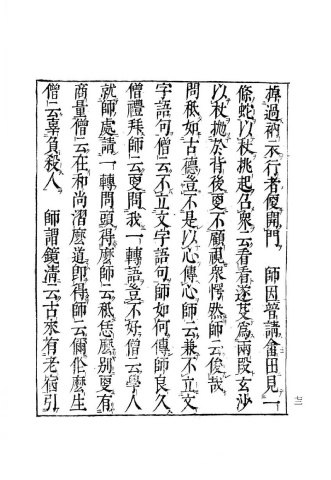 掉過衲衣行者便開門　師因普請畬田見一
條蛇以杖挑起召衆云看看遂芟爲兩段玄沙
以杖拋於背後更不顧視衆愕然師云俊哉
問秖如古德豈不是以心傳心師云兼不立文
字語句僧云不立文字語句師如何傳師良久
僧禮拜師云更問我一轉語豈不好僧云學人
就師處請一轉問頭得麼師云秖恁麼別更有
商量僧云在和尚溜麼道即得師云儞作麼生
僧云辜負殺人　師謂鏡清云古來有老宿引